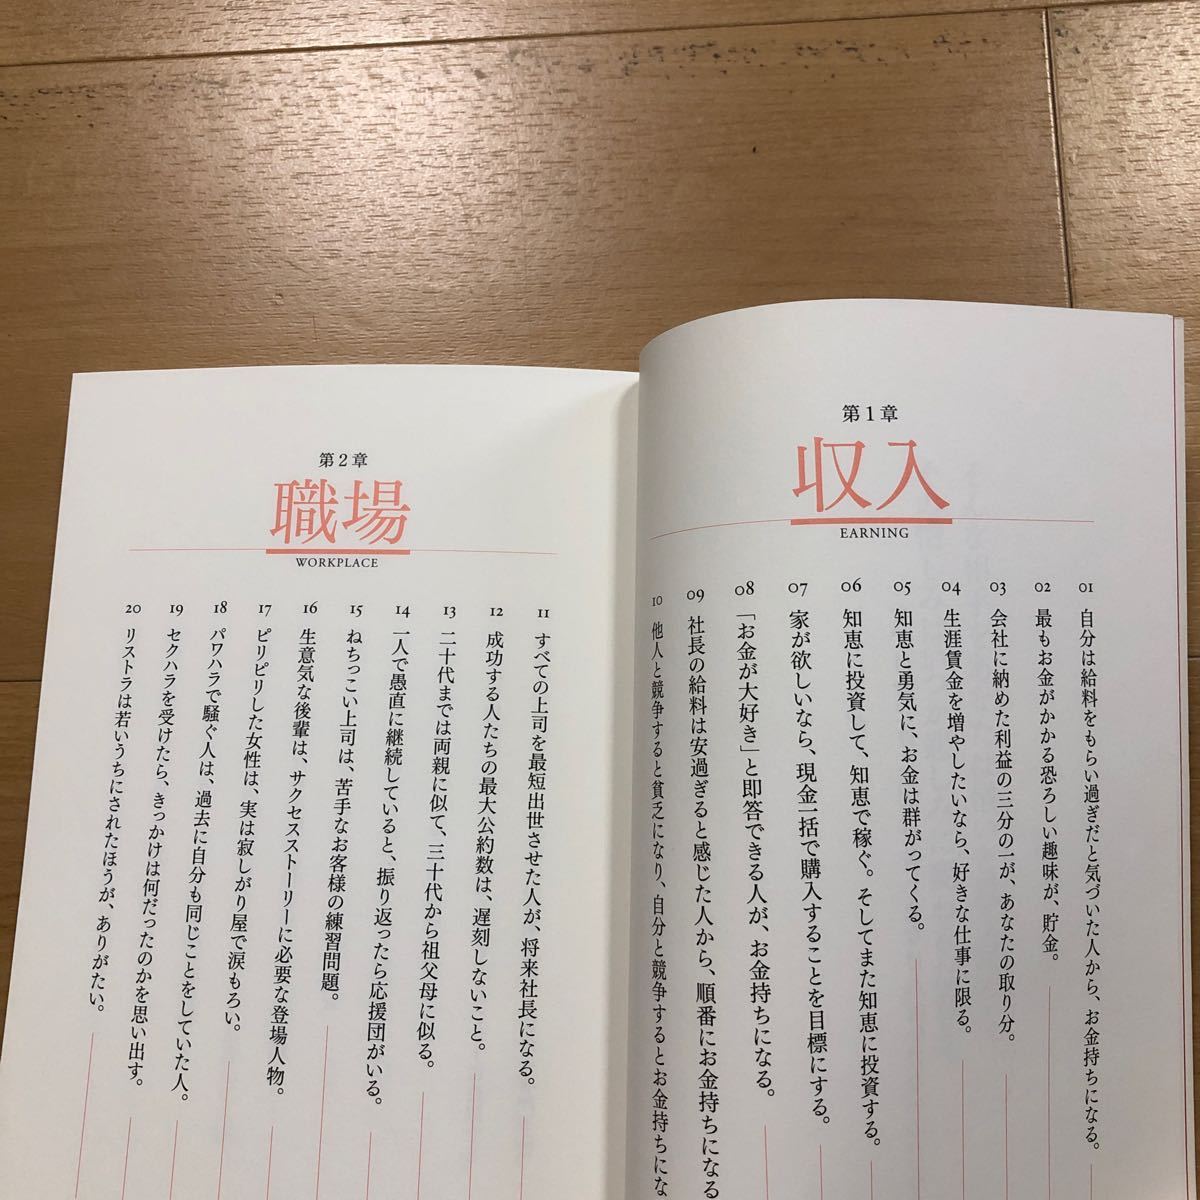 第1章
収入
EARNING
01 自分は給料をもらい過ぎだと気づいた人から、お金持ちになる。
02 最もお金がかかる恐ろしい趣味が、貯金。
03 会社に納めた利益の三分の一が、あなたの取り分。
04 生涯賃金を増やしたいなら、好きな仕事に限る。
05 知恵と勇気に、お金は群がってくる。
06 知恵に投資して、知恵で稼ぐ。そしてまた知恵に投資する。
07 家が欲しいなら、現金一括で購入することを目標にする。
08 「お金が大好き」と即答できる人が、お金持ちになる。
09 社長の給料は安過ぎると感じた人から、順番にお金持ちになる
10 他人と競争すると貧乏になり、自分と競争するとお金持ちにな
第2章
職場
WORKPLACE
11 すべての上司を最短出世させた人が、将来社長になる。
12 成功する人たちの最大公約数は、遅刻しないこと。
13 二十代までは両親に似て、三十代から祖父母に似る。
14 一人で愚直に継続していると、振り返ったら応援団がいる。
15 ねちっこい上司は、苦手なお客様の練習問題。
16 生意気な後輩は、サクセスストーリーに必要な登場人物。
17 ピリピリした女性は、実は寂しがり屋で涙もろい。
18 パワハラで騒ぐ人は、過去に自分も同じことをしていた人。
19 セクハラを受けたら、きっかけは何だったのかを思い出す。
20 リストラは若いうちにされたほうが、ありがたい。